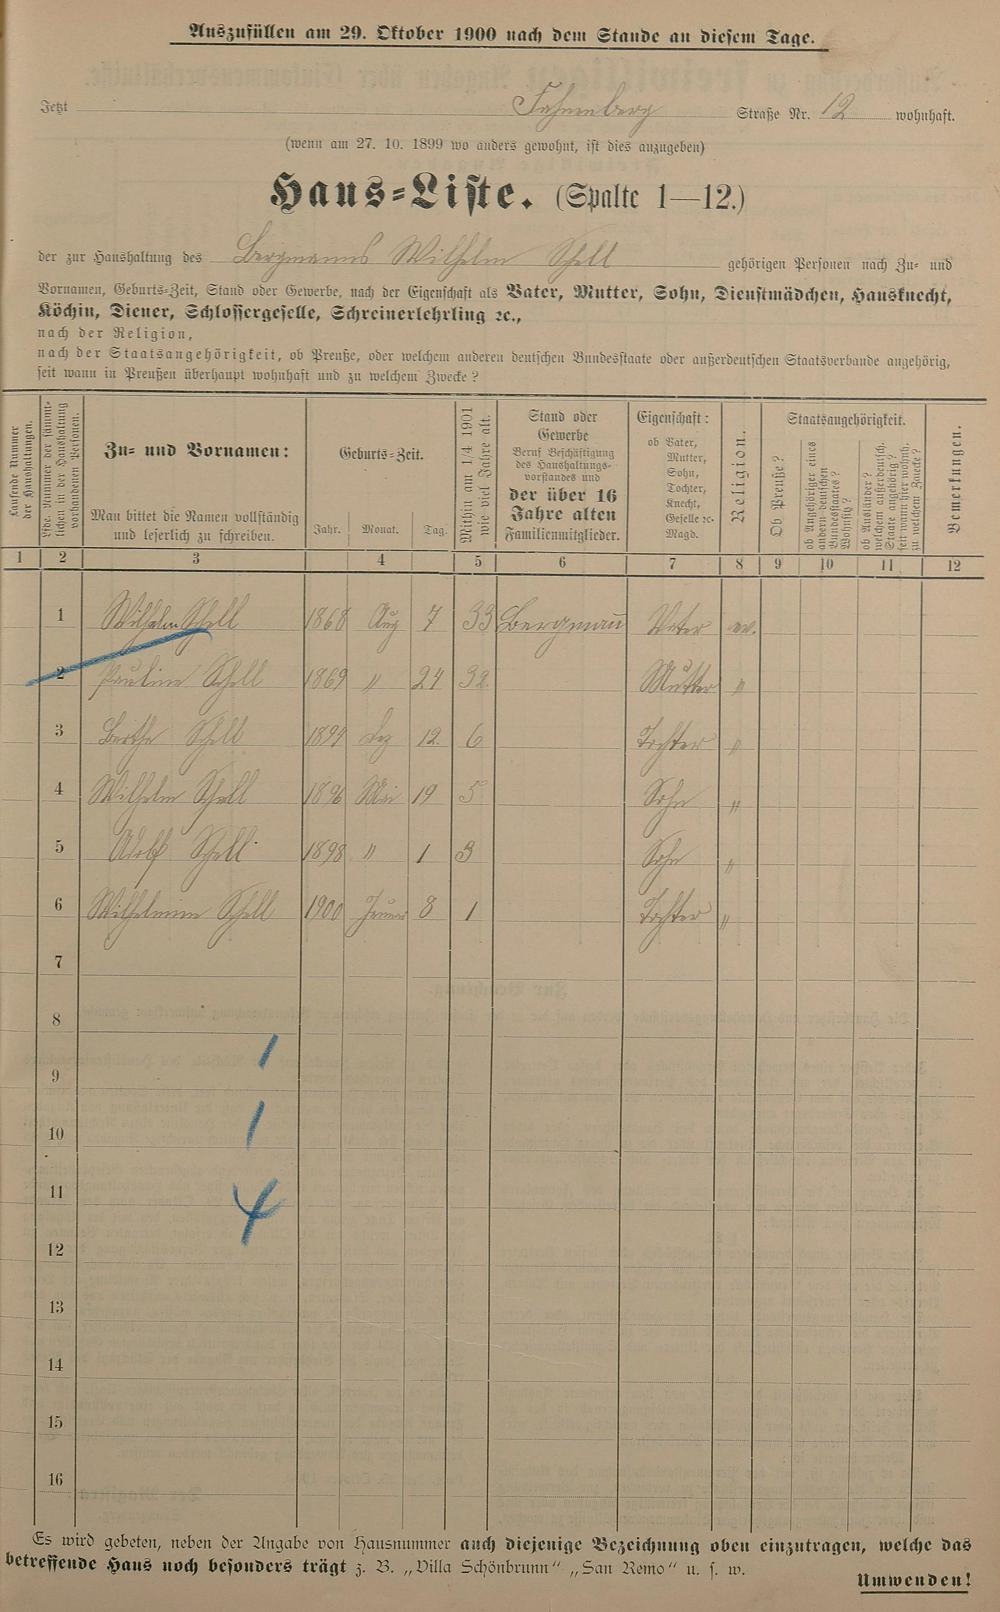 Auszufüllen am 29. Oktober 1900 nach dem Stande an diesem Tage.
Jetzt Straße Nr. 12 wohnhaft.
(wenn am 27. 10. 1899 wo anders gewohnt, ist dies anzugeben)
Haus-Liste. (Spalte 1—12.)
der zur Haushaltung des Bergmanns Wilhelm Schell gehörigen Personen nach Zu- und
Vornamen, Geburts-Zeit, Stand oder Gewerbe, nach der Eigenschaft als Vater, Mutter, Sohn, Dienstmädchen, Hausknecht,
Köchin, Diener, Schlossergeselle, Schreinerlehrling ꝛc.,
nach der Religion,
nach der Staatsangehörigkeit, ob Preuße, oder welchem anderen deutschen Bundesstaate oder außerdeutschen Staatsverbande angehörig,
seit wann in Preußen überhaupt wohnhaft und zu welchem Zwecke?
Laufende Nummer
der Haushaltungen.
Lfde. Nummer der sämmt-
lichen in der Haushaltung
vorhandenen Personen.
Zu- und Vornamen:
Man bittet die Namen vollständig
und leserlich zu schreiben.
Geburts-Zeit.
Jahr. Monat. Tag.
Mithin am 1/4 1901
wie viel Jahre alt.
Stand oder
Gewerbe
Beruf Beschäftigung
des Haushaltungs-
vorstandes und
der über 16
Jahre alten
Familienmitglieder.
Eigenschaft:
ob Vater,
Mutter,
Sohn,
Tochter,
Knecht,
Geselle ꝛc.
Magd.
Religion.
Staatsangehörigkeit.
Ob Preuße?
ob Angehöriger eines
andern deutschen
Bundesstaates?
Wohnsitz?
ob Ausländer?
welchem außerdeutsch.
Staate angehörig?
seit wann hier wohnh.
zu welchem Zwecke?
Bemerkungen.
1 2 3 4 5 6 7 8 9 10 11 12
1 Wilhelm Schell 1868 Aug 7 33 Bergmann Vater ev.
2 Pauline Schell 1869 " 24 32 Mutter "
3 Bertha Schell 1894 Dez 12. 6 Tochter "
4 Wilhelm Schell 1896 Mai 19 5 Sohn "
5 Adolf Schell 1898 " 1 3 Sohn "
6 Wilhelmine Schell 1900 Januar 8 1 Tochter "
7
8
1
9
1
10
11
4
12
13
14
15
16
Es wird gebeten, neben der Angabe von Hausnummer auch diejenige Bezeichnung oben einzutragen, welche das
betreffende Haus noch besonders trägt z. B. „Villa Schönbrunn" „San Remo" u. s. w.
Umwenden!